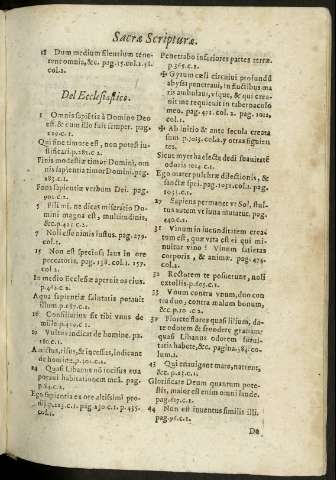 Sacræ Scripturæ.
18 Dum medium silentium tene-
rent omnia, &c. pag.15.col.1.58.
col.2.
Del Ecclesiastico.
1 Omnis sapiẽtia à Domino Deo
est, & cum illo fuit semper. pag.
col.1.
Qui sine timore est, non potest iu-
stificari.p. col.2.
nis sapientia timor Domini.pag.
col.1.
Fons sapientiæ verbum Dei. pag.
col.1.
5 Fili mi, ne dicas miseratio Do-
mini magna est, multitudinis,
&c.p. c.2.
7 Noli esse amicis iustus. pag.279.
col.1.
15 Non est speciosa laus in ore
peccatoris. pag. 138. col.1. 157.
col.1.
In medio Ecclesiæ aperuit os eius.
p. c.1.
Aqua sapientiæ salutaris potauit
illum.p. c.1.
Consiliarius sit tibi vnus de
mille.p. c.1.
Vultus indicat de homine. pa.
c.1.
Amictus, risus, & incessus, indicant
de homine.p. c.1.
24 Quasi Libanus nõ incisus eua
poraui habitationem meã. pag.
c.1.
Ego sapientia ex ore altissimi pro-
dij.p.223.c.1. pag.230.c.1. p.435.
col.1.
Penetrabo inferiores partes terræ.
p.365.c.1.
✠ Gyrum cæli circuiui profundũ
abyssi penetraui, in fluctibus ma
ris ambulaui, vsque, & qui crea-
uit me requieuit in tabernaculo
meo. pag. 471. col. 2. pag. 1012.
col.1.
✠ Ab initio & ante secula creata
sum. p.1013.col.2.y otras siguien
tes.
Sicut myrrha electa dedi suauitatẽ
odoris 1014 c.1.
Ego mater pulchræ dilectionis, &
sanctæ spei. pag.1031. col.1. pag.
1035.c.1.
27 Sapiens permanet vt Sol, stul-
tus autem vt luna mutatur. pag.
440.c.1.
31 Vinum in iucunditatem crea-
tum est, quæ vita est ei qui mi-
nuitur vino? Vinum satietas
corporis, & animæ. pag.474.
col.1.
32 Rectorem te posuerunt, noli
extolli.p.605.c.1.
33 Vnum contra vnum, duo con
tra duo, contra malum bonum,
&c.p.10 .c.2.
39 Florete flores quasi lilium, da-
te odorem & frondete gratiam:
quasi Libanus odorem suaui-
tatis habete, &c. pagina.384.co-
lum.1.
43 Qui enauigant mare, narrent,
&c.p.25.c.1.
Glorificate Deum quantum pote-
stis, maior est enim omni laude.
pag.617.c.1.
44 Non est inuentus similis illi.
pag.96.c.1.
De